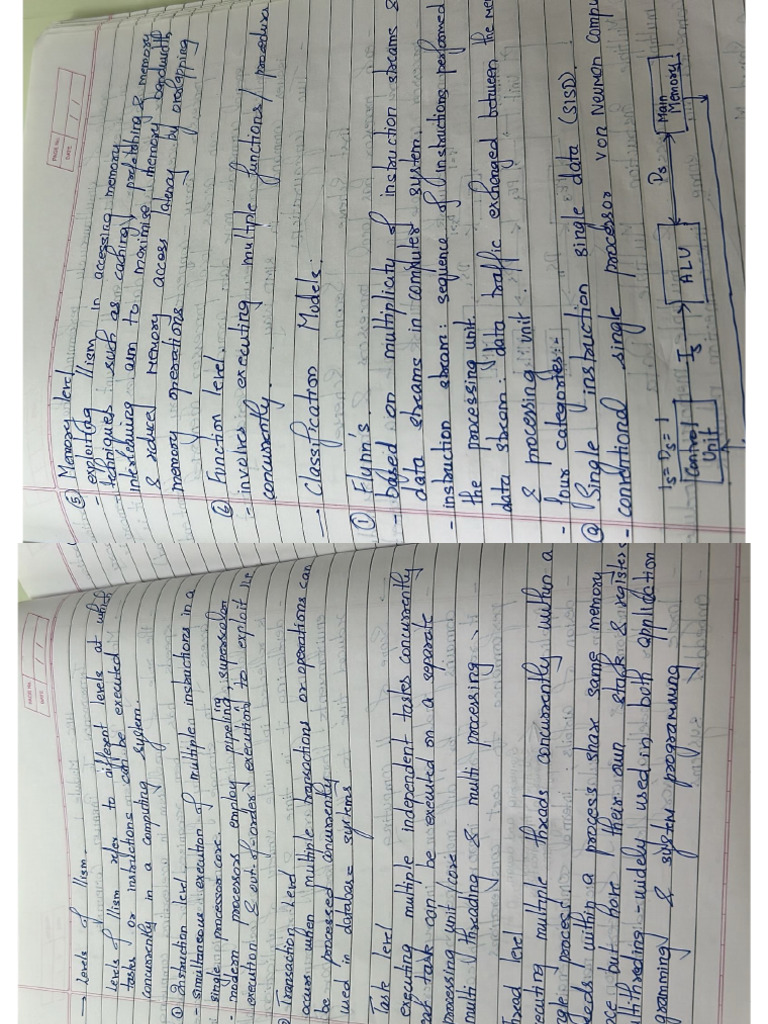 → Levels of llism.
levels of llism refer to different levels at which
tasks or instructions can be executed
concurrently in a computing system.
① Instruction level
- simultaneous execution of multiple instructions in a
single processor core.
- modern processors employ pipelining, superscalar
execution & out-of-order execution to exploit
Transaction Level
occurs when multiple transactions or operations can
be processed concurrently
used in database systems
Task level
executing multiple independent tasks concurrently
task can be executed on a separate
processing unit/core
multi threading & multi processing
level
executing multiple threads concurrently within a
process
within a process share same memory
but have their own stack & registers
- widely used in both application
& system programming
PAGE NO.
DATE
⑤ Memory level
- exploiting llism in accessing memory
- techniques such as caching, prefetching & memory
interleaving aim to maximise memory bandwidth
& reduce memory access latency by overlapping
memory operations
⑥ Function level
- involves executing multiple functions/
concurrently.
→ Classification Models:
① Flynn's.
- based on multiplicity of instruction streams &
data streams in computer system.
- instruction stream: sequence of instructions performed
the processing unit.
data stream: data traffic exchanged between the
& processing unit.
- four categories:-
ⓐ Single instruction single data (SISD).
- conventional single processor von Neuman
Is = Ds = 1
Control Unit
Is
ALU
Ds
Main Memory
PAGE NO.
DATE